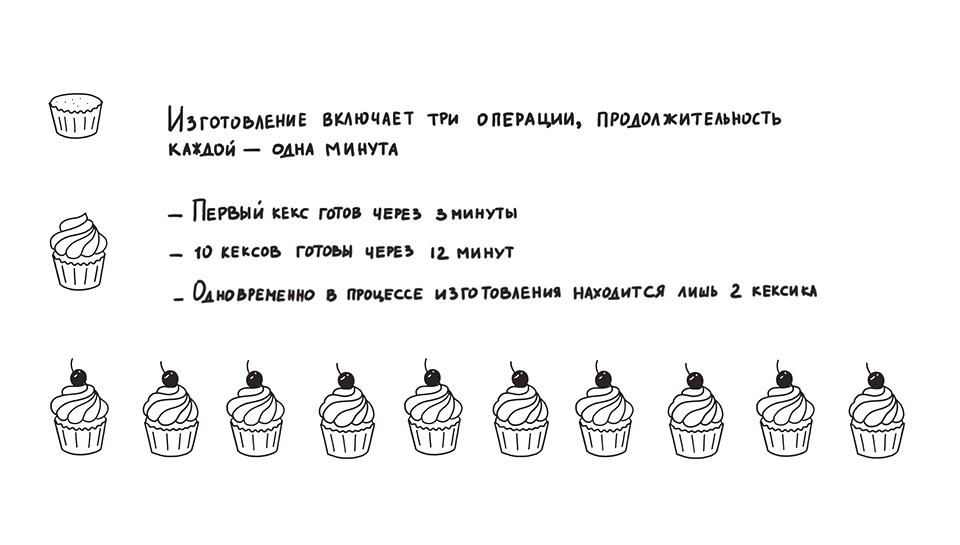 Изготовление включает три операции, продолжительность
каждой — одна минута
– Первый кекс готов через 3 минуты
– 10 кексов готовы через 12 минут
– Одновременно в процессе изготовления находится лишь 2 кексика